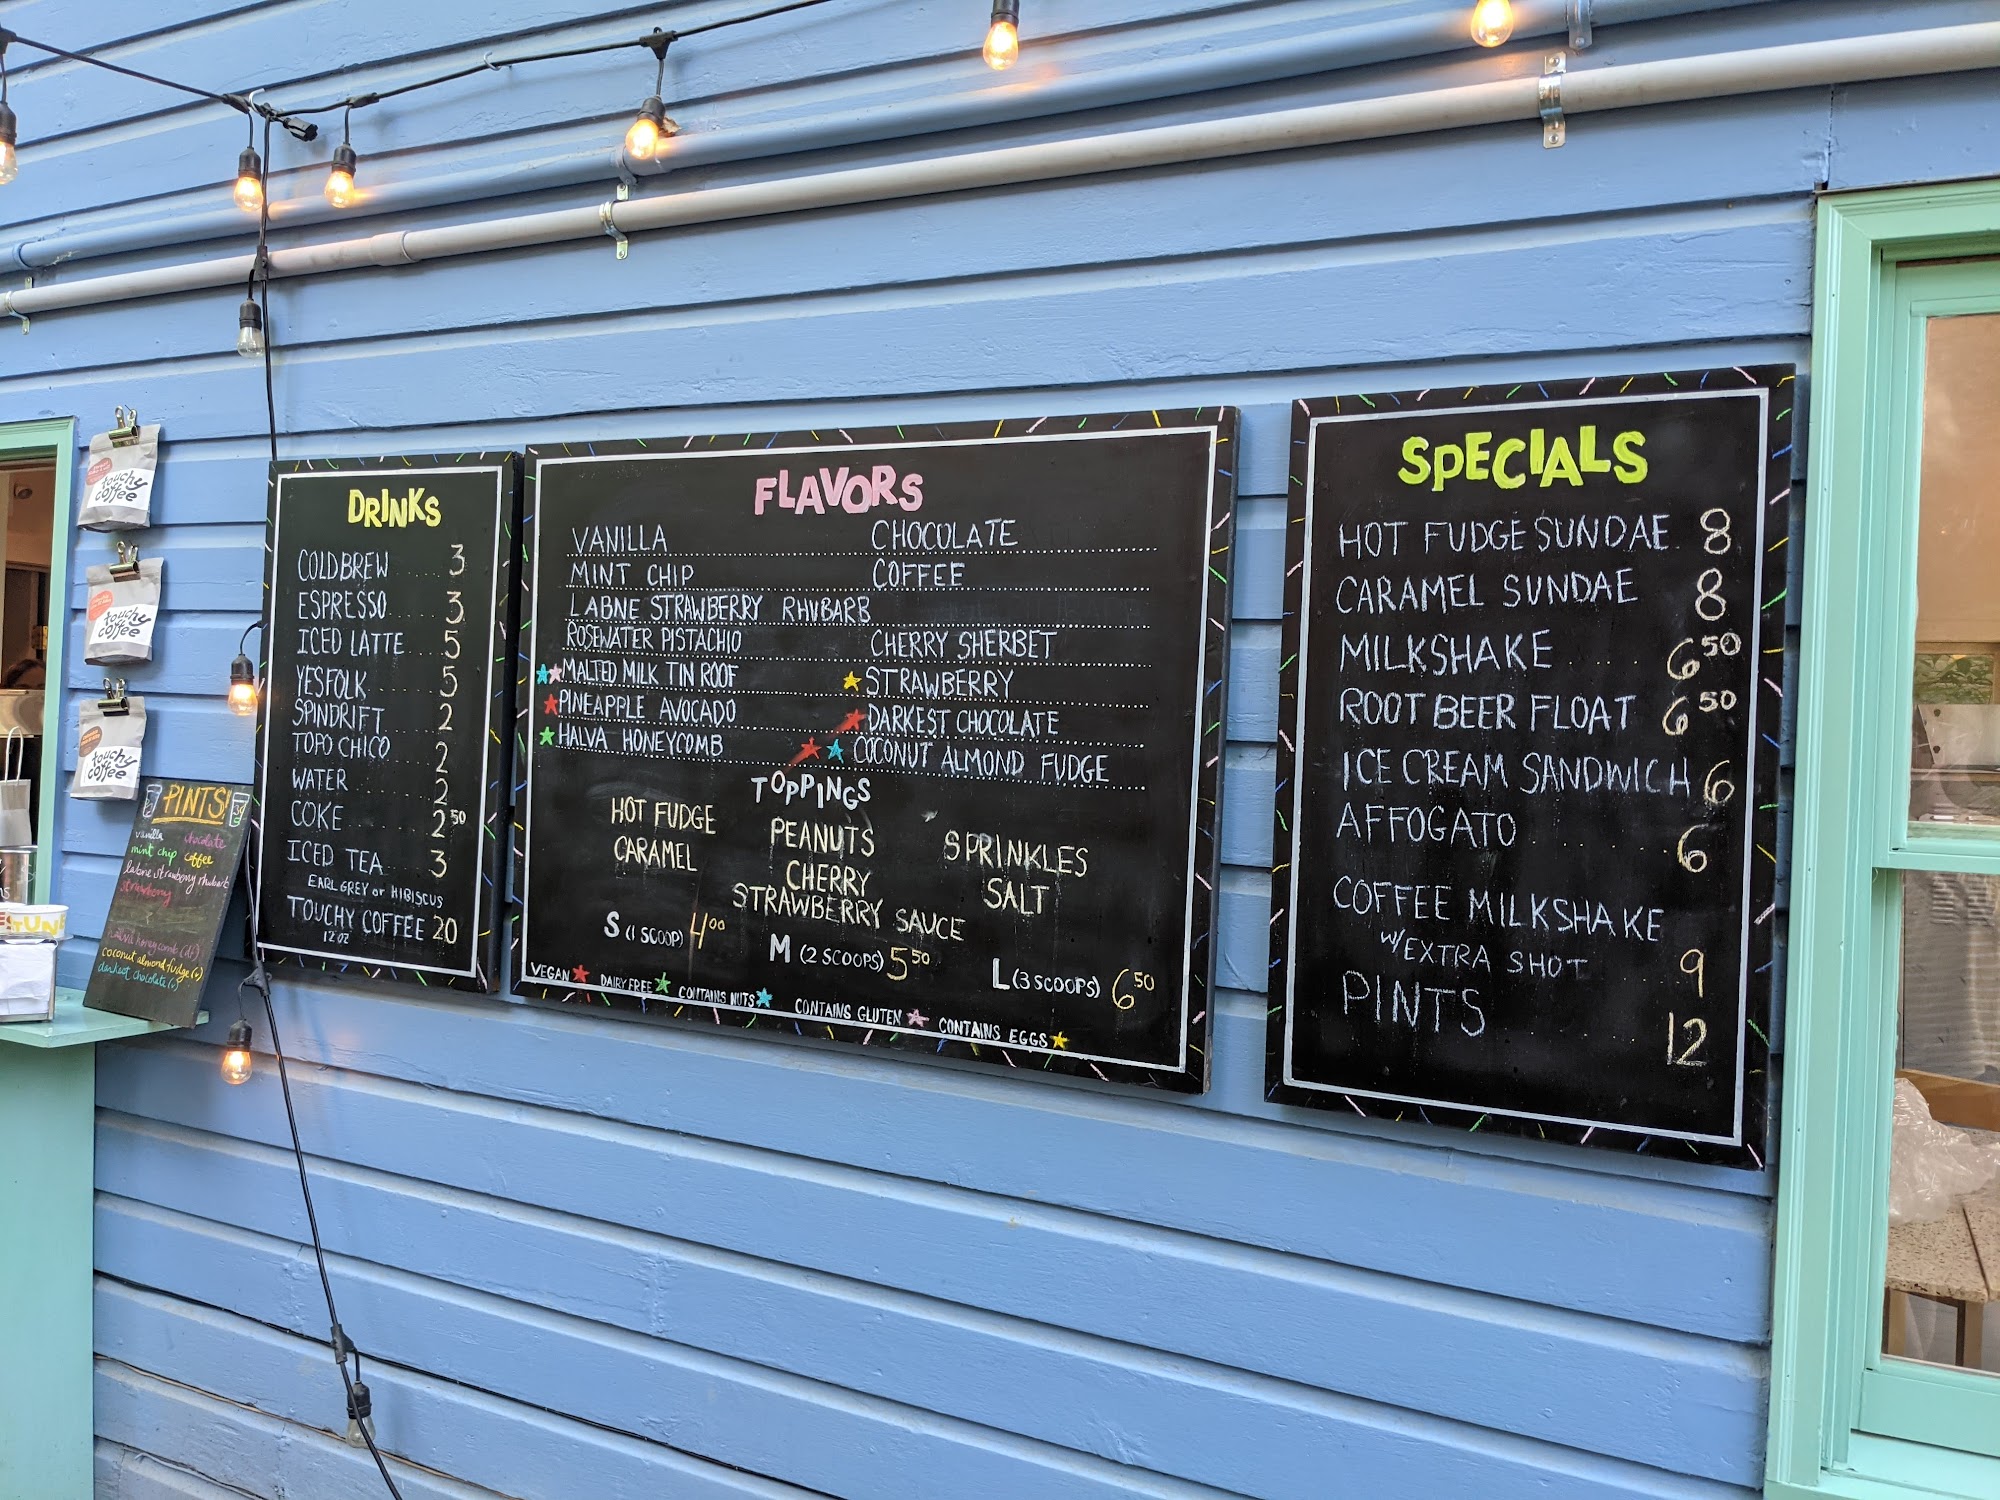 touchy
coffee
touchy
coffee
touchy
coffee
PINTS!
vanilla chocolate
mint chip coffee
labne strawberry rhubarb
strawberry
halva honeycomb (df)
coconut almond fudge (v)
darkest chocolate (v)
DRINKS
COLD BREW 3
ESPRESSO 3
ICED LATTE 5
YESFOLK 5
SPINDRIFT 2
TOPO CHICO 2
WATER 2
COKE 2 50
ICED TEA 3
EARL GREY or HIBISCUS
TOUCHY COFFEE 20
12 OZ
FLAVORS
VANILLA CHOCOLATE
MINT CHIP COFFEE
LABNE STRAWBERRY RHUBARB
ROSEWATER PISTACHIO CHERRY SHERBET
MALTED MILK TIN ROOF STRAWBERRY
PINEAPPLE AVOCADO DARKEST CHOCOLATE
HALVA HONEYCOMB COCONUT ALMOND FUDGE
TOPPINGS
HOT FUDGE PEANUTS SPRINKLES
CARAMEL CHERRY SALT
STRAWBERRY SAUCE
S (1 SCOOP) 4 00 M (2 SCOOPS) 5 50 L (3 SCOOPS) 6 50
VEGAN DAIRY FREE CONTAINS NUTS CONTAINS GLUTEN CONTAINS EGGS
SPECIALS
HOT FUDGE SUNDAE 8
CARAMEL SUNDAE 8
MILKSHAKE 6 50
ROOT BEER FLOAT 6 50
ICE CREAM SANDWICH 6
AFFOGATO 6
COFFEE MILKSHAKE
W/EXTRA SHOT 9
PINTS 12